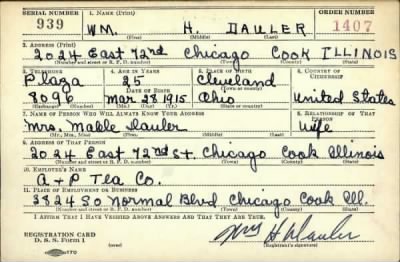 SERIAL NUMBER 1. NAME (Print) ORDER NUMBER
939 WM. H. DAULER 1407
(First) (Middle) (Last)
2. ADDRESS (Print)
2024 East 72nd Chicago Cook ILLINOIS
(Number and street or R. F. D. number) (Town) (County) (State)
3. TELEPHONE 4. AGE IN YEARS 5. PLACE OF BIRTH 6. COUNTRY OF CITIZENSHIP
Plaza 25 Cleveland
8096 DATE OF BIRTH (Town or county)
Mar 28 1915 Ohio United States
(Exchange) (Number) (Mo.) (Day) (Yr.) (State or country)
7. NAME OF PERSON WHO WILL ALWAYS KNOW YOUR ADDRESS 8. RELATIONSHIP OF THAT PERSON
Mrs. Mable Dauler Wife
(Mr., Mrs., Miss) (First) (Middle) (Last)
9. ADDRESS OF THAT PERSON
2024 East 72nd St. Chicago Cook Illinois
(Number and street or R. F. D. number) (Town) (County) (State)
10. EMPLOYER'S NAME
A & P Tea Co.
11. PLACE OF EMPLOYMENT OR BUSINESS
3824 So Normal Blvd Chicago Cook Ill.
(Number and street or R. F. D. number) (Town) (County) (State)
I AFFIRM THAT I HAVE VERIFIED ABOVE ANSWERS AND THAT THEY ARE TRUE.
REGISTRATION CARD
D. S. S. Form 1 Wm H Dauler
(Registrant's signature)